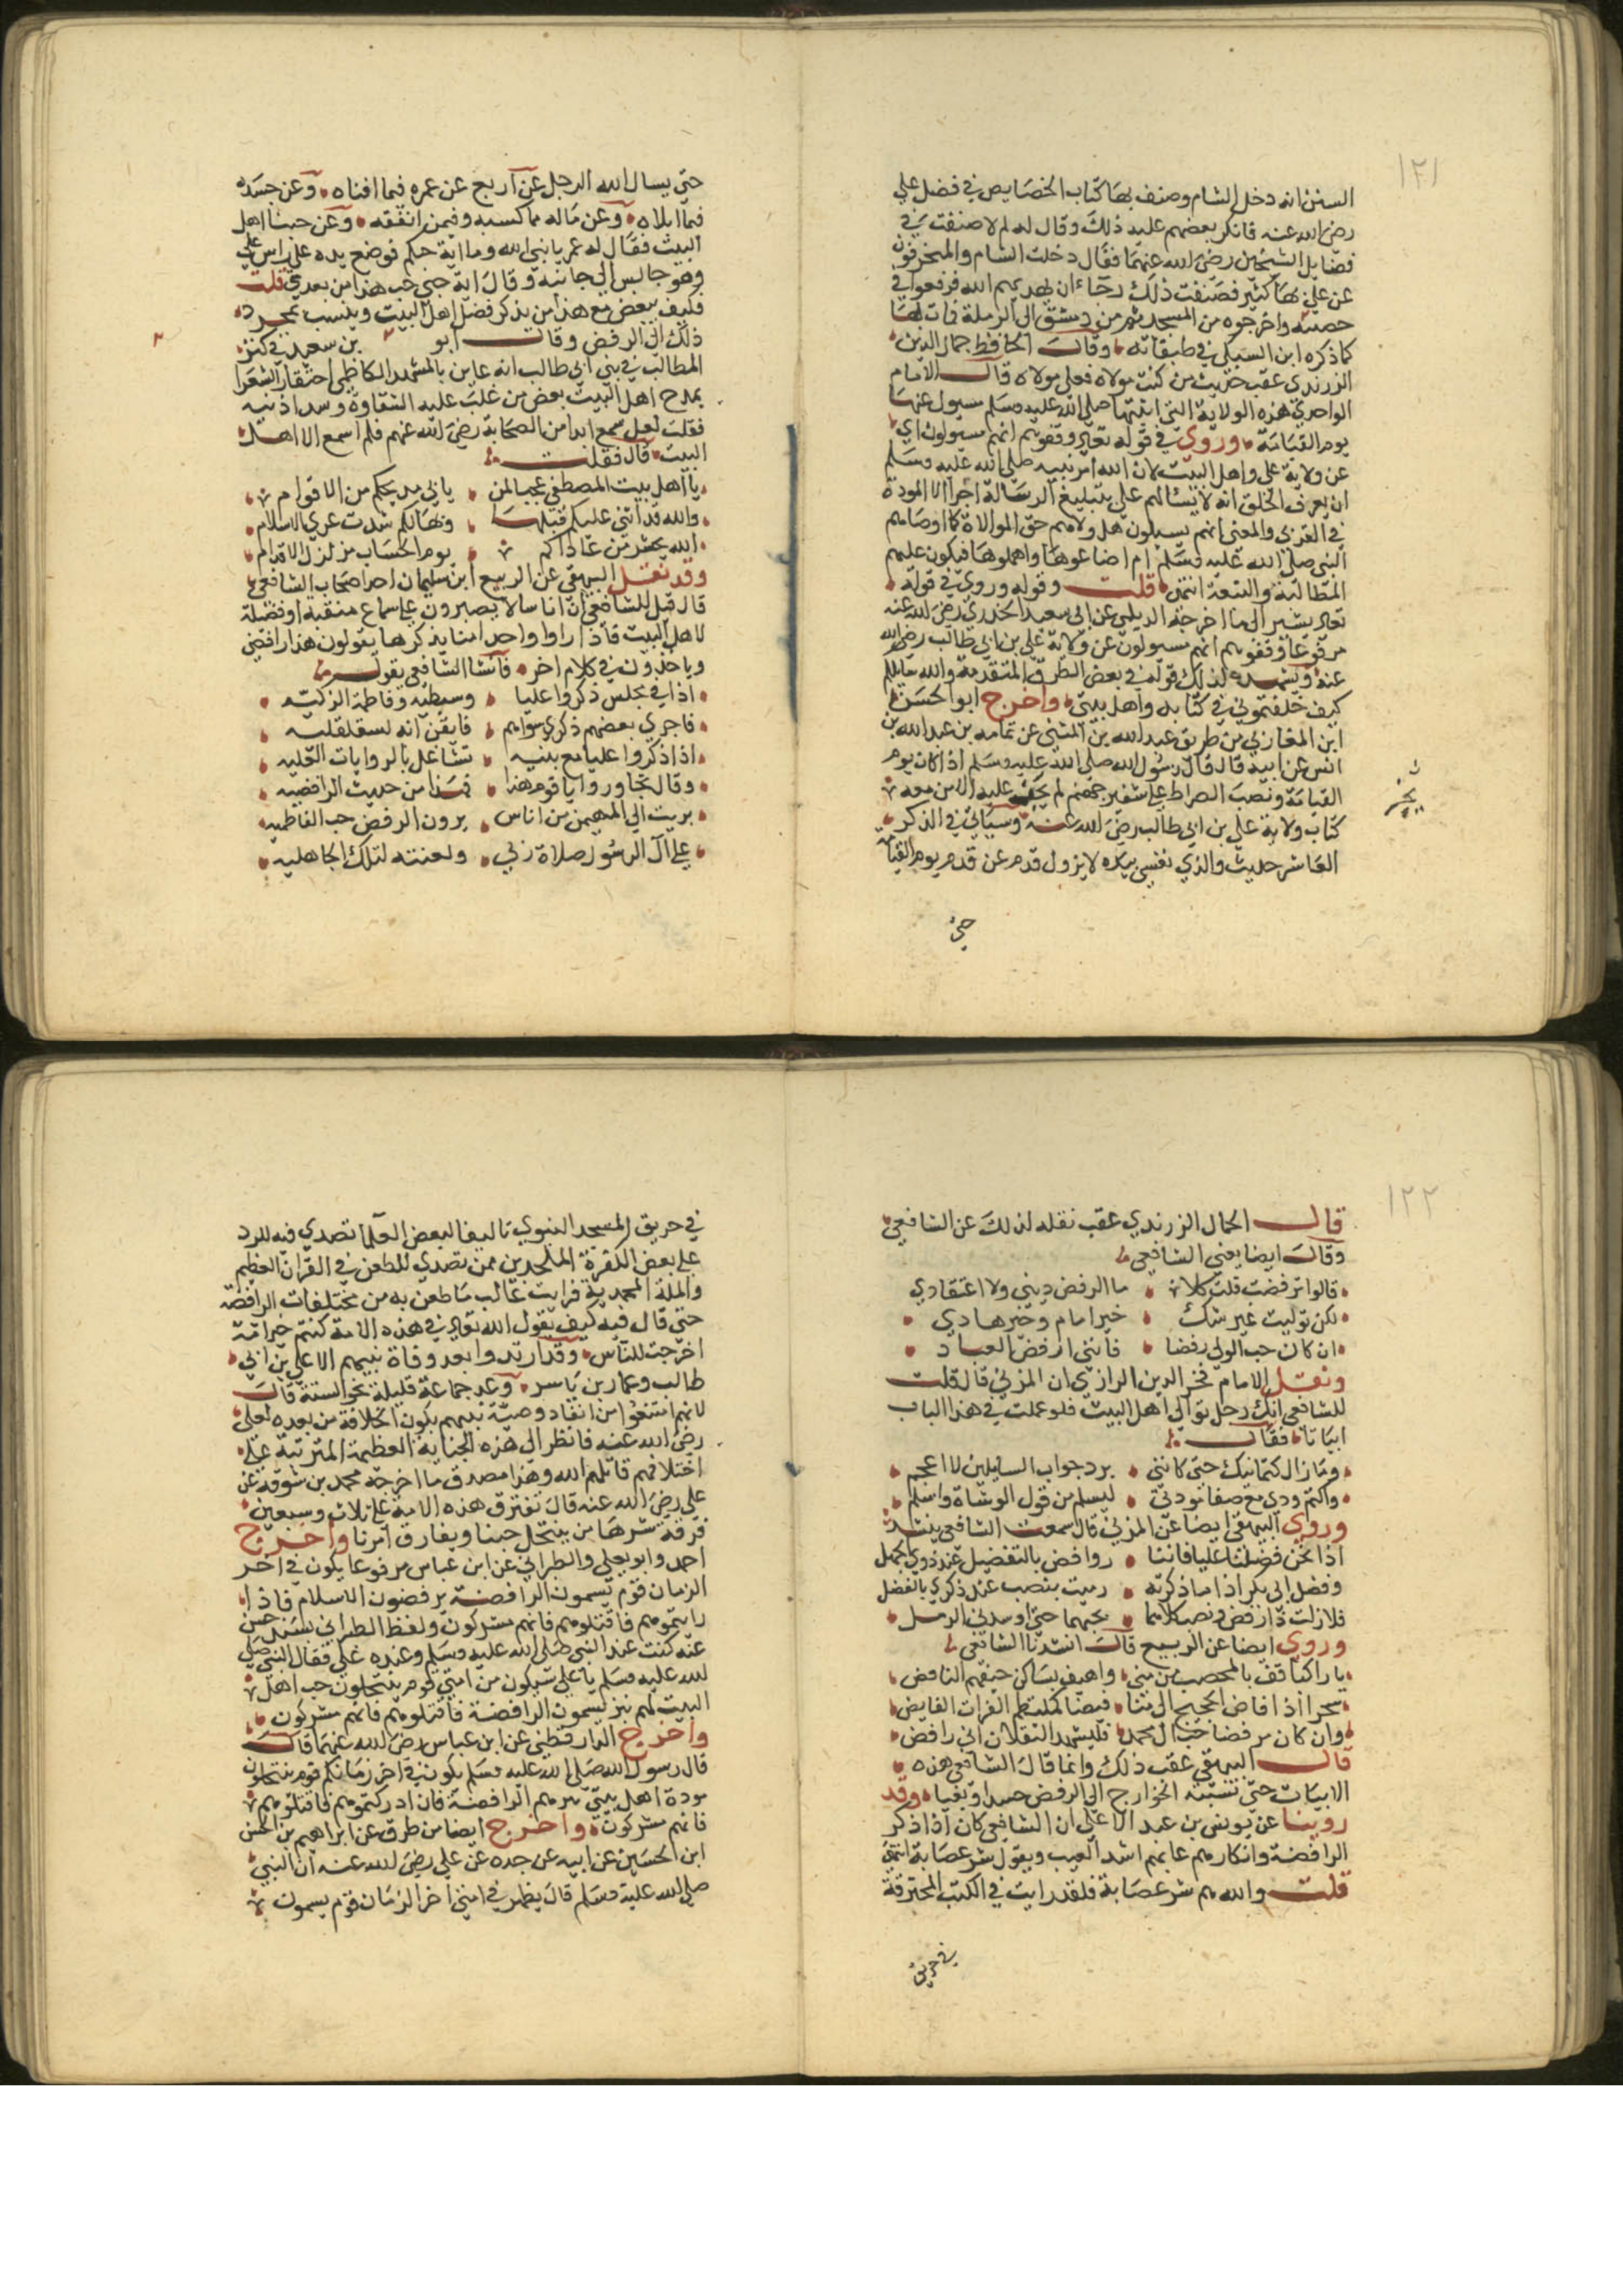 ١٢١
السنن انه دخل الشام وصنف بها كتاب الخصايص في فضل علي
رضي الله عنه فانكر بعضهم عليه ذلك وقال له لم لا صنفت في
فضايل الشيخين رضي الله عنهما فقال دخلت الشام والمنحرفون
عن علي بها كثير فصنفت ذلك رجاء ان يهديهم الله فدفعوا في
حصييه واخرجوه من المسجد ثم من دمشق الى الرملة فمات بها
كما ذكره ابن السبكي في طبقاته وقال الحافظ جمال الدين
الزرندي عقب حديث من كنت مولاه فعلي مولاه قال الامام
الواحدي هذه الولاية التي اثبتها صلى الله عليه وسلم مسيول عنها
يوم القيامة وروي في قوله تعالى وقفوهم انهم مسيولون اي
عن ولاية علي واهل البيت لان الله امر نبيه صلى الله عليه وسلم
ان يعرف الخلق انه لا يسالهم على تبليغ الرسالة اجرا الا المودة
في القربى والمعنى انهم يسيلون هل والوهم حق الموالاة كما اوصاهم
النبي صلى الله عليه وسلم ام اضاعوها واهملوها فيكون عليهم
المطالبة والتبعة انتهى قلت وقوله وروي في قوله
تعالى يشير الى ما اخرجه الديلمي عن ابي سعيد الخدري رضي الله عنه
مرفوعا وقفوهم انهم مسيولون عن ولاية علي بن ابي طالب رضي الله
عنه ويشهد لذلك قوله في بعض الطرق المتقدمة والله سايلكم
كيف خلفتموني في كتابه واهل بيتي واخرج ابو الحسن
ابن المغازلي من طريق عبد الله بن المثنى عن ثمامه بن عبد الله بن
انس عن ابيه قال قال رسول الله صلى الله عليه وسلم اذا كان يوم
القيامة ونصب الصراط على شفير جهنم لم يجز عليه الا من معه
كتاب ولاية علي بن ابي طالب رضي الله عنه وسياتي في الذكر
العاشر حديث والذي نفسي بيده لا يزول قدم عن قدم يوم القيامة
حتى
حتى يسال الله الرجل عن اربع عن عمره فيما افناه وعن جسده
فيما ابلاه وعن ماله مما كسبه وفيمن انفقه وعن حبنا اهل
البيت فقال له عمر يا نبي الله وما اية حبكم فوضع يده على راس علي
وهو جالس الى جانبه وقال اية حبي حب هذا من بعدي قلت
فكيف يبغض مع هذا من يذكر فضل اهل البيت وينسب بمجرد
ذلك الى الرفض وقال ابو بن سعيد في كنز
المطالب في بني ابي طالب انه عاين بالمشهد الكاظمي احتقار الشعرا
بمدح اهل البيت بعض من غلب عليه الشقاوة وسد اذنيه
فقلت لعل سمع ابدا من الصحابة رضي الله عنهم فلم اسمع الا اهل
البيت قال فقلت
يا اهل بيت المصطفى عجبا لمن يابى مديحكم من الاقوام
والله قد اثنى عليكم قبلها وبهداكم شدت عرى الاسلام
الله يحشر من عاداكم يوم الحساب مزلزل الاقدام
وقد نقل البيهقي عن الربيع ابن سليمان احد اصحاب الشافعي
قال قيل للشافعي ان اناسا لا يصبرون على سماع منقبة او فضيلة
لاهل البيت فاذا راوا واحدا منا يذكرها يقولون هذا رافضي
وياخذون في كلام اخر فانشا الشافعي يقول
اذا في مجلس ذكروا عليا وسبطيه وفاطمة الزكيه
فاجرى بعضهم ذكرى سواهم فايقن انه لسلقلقيه
اذا ذكروا عليا مع بنيه تشاغل بالروايات العليه
وقال تجاوروا يا قوم هذا فهذا من حديث الرافضيه
بريت الى المهيمن من اناس يرون الرفض حب الفاطميه
على آل الرسول صلاة ربي ولعنته لتلك الجاهليه
١٢٢
قال الجمال الزرندي عقب نقله لذلك عن الشافعي
وقال ايضا يعني الشافعي
قالوا ترفضت قلت كلا ما الرفض ديني ولا اعتقادي
لكن توليت غير شك خير امام وخير هادي
ان كان حب الولي رفضا فانني ارفض العباد
ونقل الامام فخر الدين الرازي ان المزني قال قلت
للشافعي انك رجل توالي اهل البيت فلو عملت في هذا الباب
ابياتا فقال
وما زال كتمانيك حتى كانني برد جواب السايلين لا اعجم
واكتم ودي مع صفا مودتي ليسلم من قول الوشاة واسلم
وروى البيهقي ايضا عن المزني قال سمعت الشافعي ينشد
اذا نحن فضلنا عليا فاننا روافض بالتفضيل عند ذوي الجهل
وفضل ابي بكر اذا ما ذكرته رميت بنصب عند ذكري بالفضل
فلا زلت ذا رفض ونصب كلاهما بحبهما حتى اوسد في الرمل
وروى ايضا عن الربيع قال انشدنا الشافعي
يا راكبا قف بالمحصب من منى واهيف بساكن خيفهم الناهض
سحرا اذا فاض الحجيج الى منا فيضا كملتطم الفرات الفايض
وان كان رفضا حب ال محمد فليشهد الثقلان اني رافض
قال البيهقي عقب ذلك وانما قال الشافعي هذه
الابيات حتى نسبته الخوارج الى الرفض حسدا وبغيا وقد
روينا عن يونس بن عبد الاعلى ان الشافعي كان اذا ذكر
الرافضة وانكارهم عابهم اشد العيب ويقول شر عصابة انتهى
قلت والله هم شر عصابة فلقد رايت في الكتب المحترقة
في حريق
في حريق المسجد النبوي تاليفا لبعض العلما تصدى فيه للرد
على بعض الكفرة الملحدين ممن تصدى للطعن في القران العظيم
والملة المحمدية فرايت غالب ما طعن به من مختلقات الرافضة
حتى قال فيه كيف يقول الله تعالى في هذه الامة كنتم خير امة
اخرجت للناس وقد ارتدوا بعد وفاة نبيهم الا علي بن ابي
طالب وعمار بن ياسر وعد جماعة قليلة نحو الستة قال
لانهم امتنعوا من انفاد وصية نبيهم بكون الخلافة من بعده لعلي
رضي الله عنه فانظر الى هذه الجناية العظيمة المترتبة على
اختلافهم قاتلهم الله وهذا مصدق ما اخرجه محمد بن سوقة عن
علي رضي الله عنه قال تفترق هذه الامة على ثلاث وسبعين
فرقة شرها من ينتحل حبنا ويفارق امرنا واخرج
احمد وابو يعلى والطبراني عن ابن عباس مرفوعا يكون في اخر
الزمان قوم يسمون الرافضة يرفضون الاسلام فاذا
رايتموهم فاقتلوهم فانهم مشركون ولفظ الطبراني بسند حسن
عنه كنت عند النبي صلى الله عليه وسلم وعنده علي فقال النبي صلى
الله عليه وسلم يا علي سيكون من امتي قوم ينتحلون حب اهل
البيت لهم نبز يسمون الرافضة فاقتلوهم فانهم مشركون
واخرج الدارقطني عن ابن عباس رضي الله عنهما قال
قال رسول الله صلى الله عليه وسلم يكون في اخر زمانكم قوم ينتحلون
مودة اهل بيتي هم الرافضة فان ادركتموهم فاقتلوهم
فانهم مشركون واخرج ايضا من طرق عن ابراهيم بن الحسن
ابن الحسين عن ابيه عن جده عن علي رضي الله عنه ان النبي
صلى الله عليه وسلم قال يظهر في امتي اخر الزمان قوم يسمون